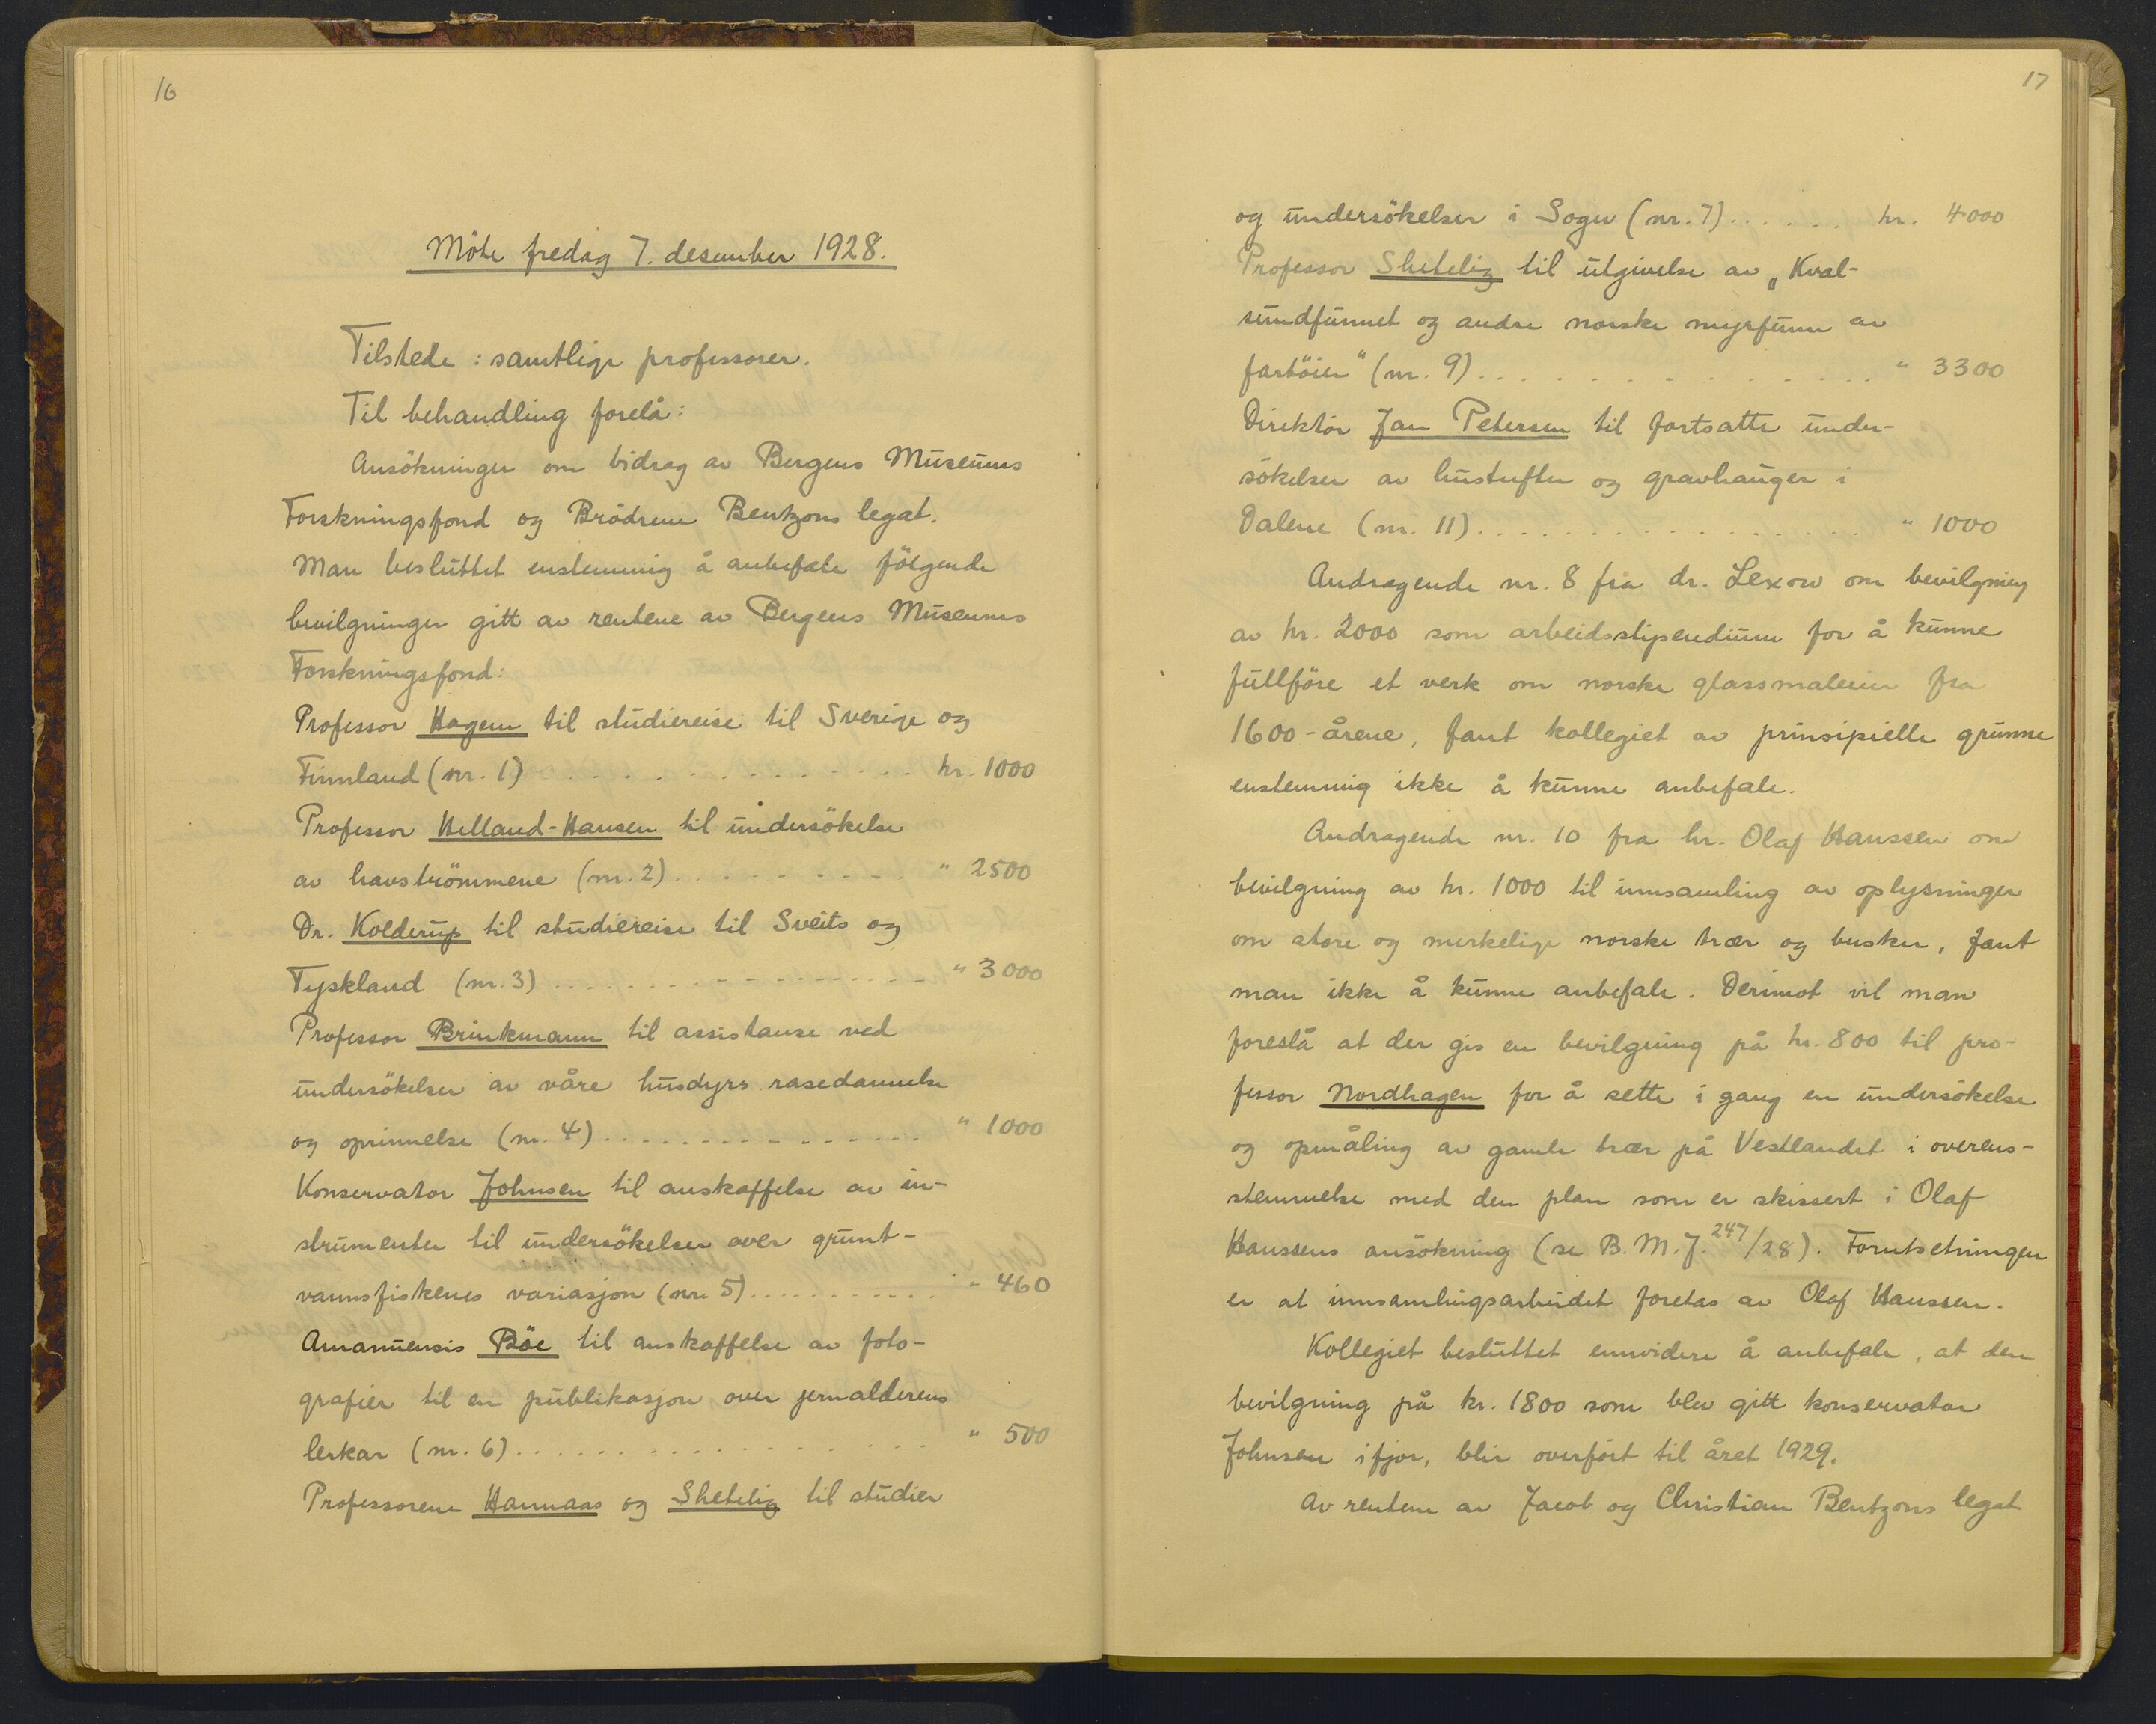 16
Möte fredag 7. desember 1928.
Tilstede : samtlige professorer.
Til behandling forelå:
Ansökninger om bidrag av Bergens Museums
Forskningsfond og Brödrene Bentzons legat.
Man besluttet enstemmig å anbefale fölgende
bevilgninger gitt av rentene av Bergens Museums
Forskningsfond:
Professor Hagem til studiereise til Sverige og
Finnland (nr. 1) . . . . . . . . . . . . . . kr. 1000
Professor Helland-Hansen til undersökelse
av havströmmene (nr. 2) . . . . . . . . . " 2500
Dr. Kolderup til studiereise til Sveits og
Tyskland (nr. 3) . . . . . . . . . . . . . . . " 3000
Professor Brinkmann til assistanse ved
undersökelser av våre husdyrs rasedannelse
og oprinnelse (nr. 4) . . . . . . . . . . . . . . " 1000
Konservator Johnsen til anskaffelse av in-
strumenter til undersökelser over grunt-
vannsfiskenes variasjon (nr. 5) . . . . . . . . . . . " 460
Amanuensis Böe til anskaffelse av foto-
grafier til en publikasjon over jernalderens
lerkar (nr. 6) . . . . . . . . . . . . . . . . " 500
Professorene Hannaas og Shetelig til studier
17
og undersökelser i Sogn (nr. 7) . . . . . . kr. 4000
Professor Shetelig til utgivelse av „Kval-
sundfunnet og andre norske myrfunn av
fartöier" (nr. 9) . . . . . . . . . . . . . . . " 3300
Direktör Jan Petersen til fortsatte under-
sökelser av hustufter og gravhauger i
Dalene (nr. 11) . . . . . . . . . . . . . . . . " 1000
Andragende nr. 8 fra dr. Lexow om bevilgning
av kr. 2000 som arbeidsstipendium for å kunne
fullföre et verk om norske glassmalerier fra
1600-årene, fant kollegiet av prinsipielle grunne
enstemmig ikke å kunne anbefale.
Andragende nr. 10 fra hr. Olaf Hanssen om
bevilgning av kr. 1000 til innsamling av oplysninger
om store og merkelige norske trær og busker, fant
man ikke å kunne anbefale. Derimot vil man
foreslå at der gis en bevilgning på kr. 800 til pro-
fessor Nordhagen for å sette i gang en undersökelse
og opmåling av gamle trær på Vestlandet i overens-
stemmelse med den plan som er skissert i Olaf
Hanssens ansökning (se B. M. J. 247/28). Forutsetningen
er at innsamlingsarbeidet foretas av Olaf Hanssen.
Kollegiet besluttet ennvidere å anbefale, at den
bevilgning på kr. 1800 som blev gitt konservator
Johnsen ifjor, blir overfört til året 1929.
Av rentene av Jacob og Christian Bentzons legat